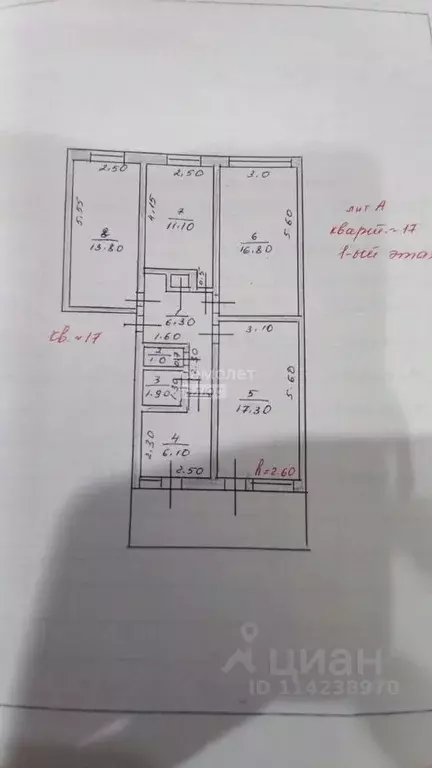 2.50
2.50
3.0
5.55
4.15
5.60
8
13.80
7
11.10
6
16.80
лит А
кварт. ~ 17
1-ый этаж
0.5
6.30
1.60
3.10
кв. ~ 17
2
1.0
0.7
3
1.90
1.30
5
17.30
5.60
4
6.10
2.30
2.50
h=2.60
циан
ID 114238970